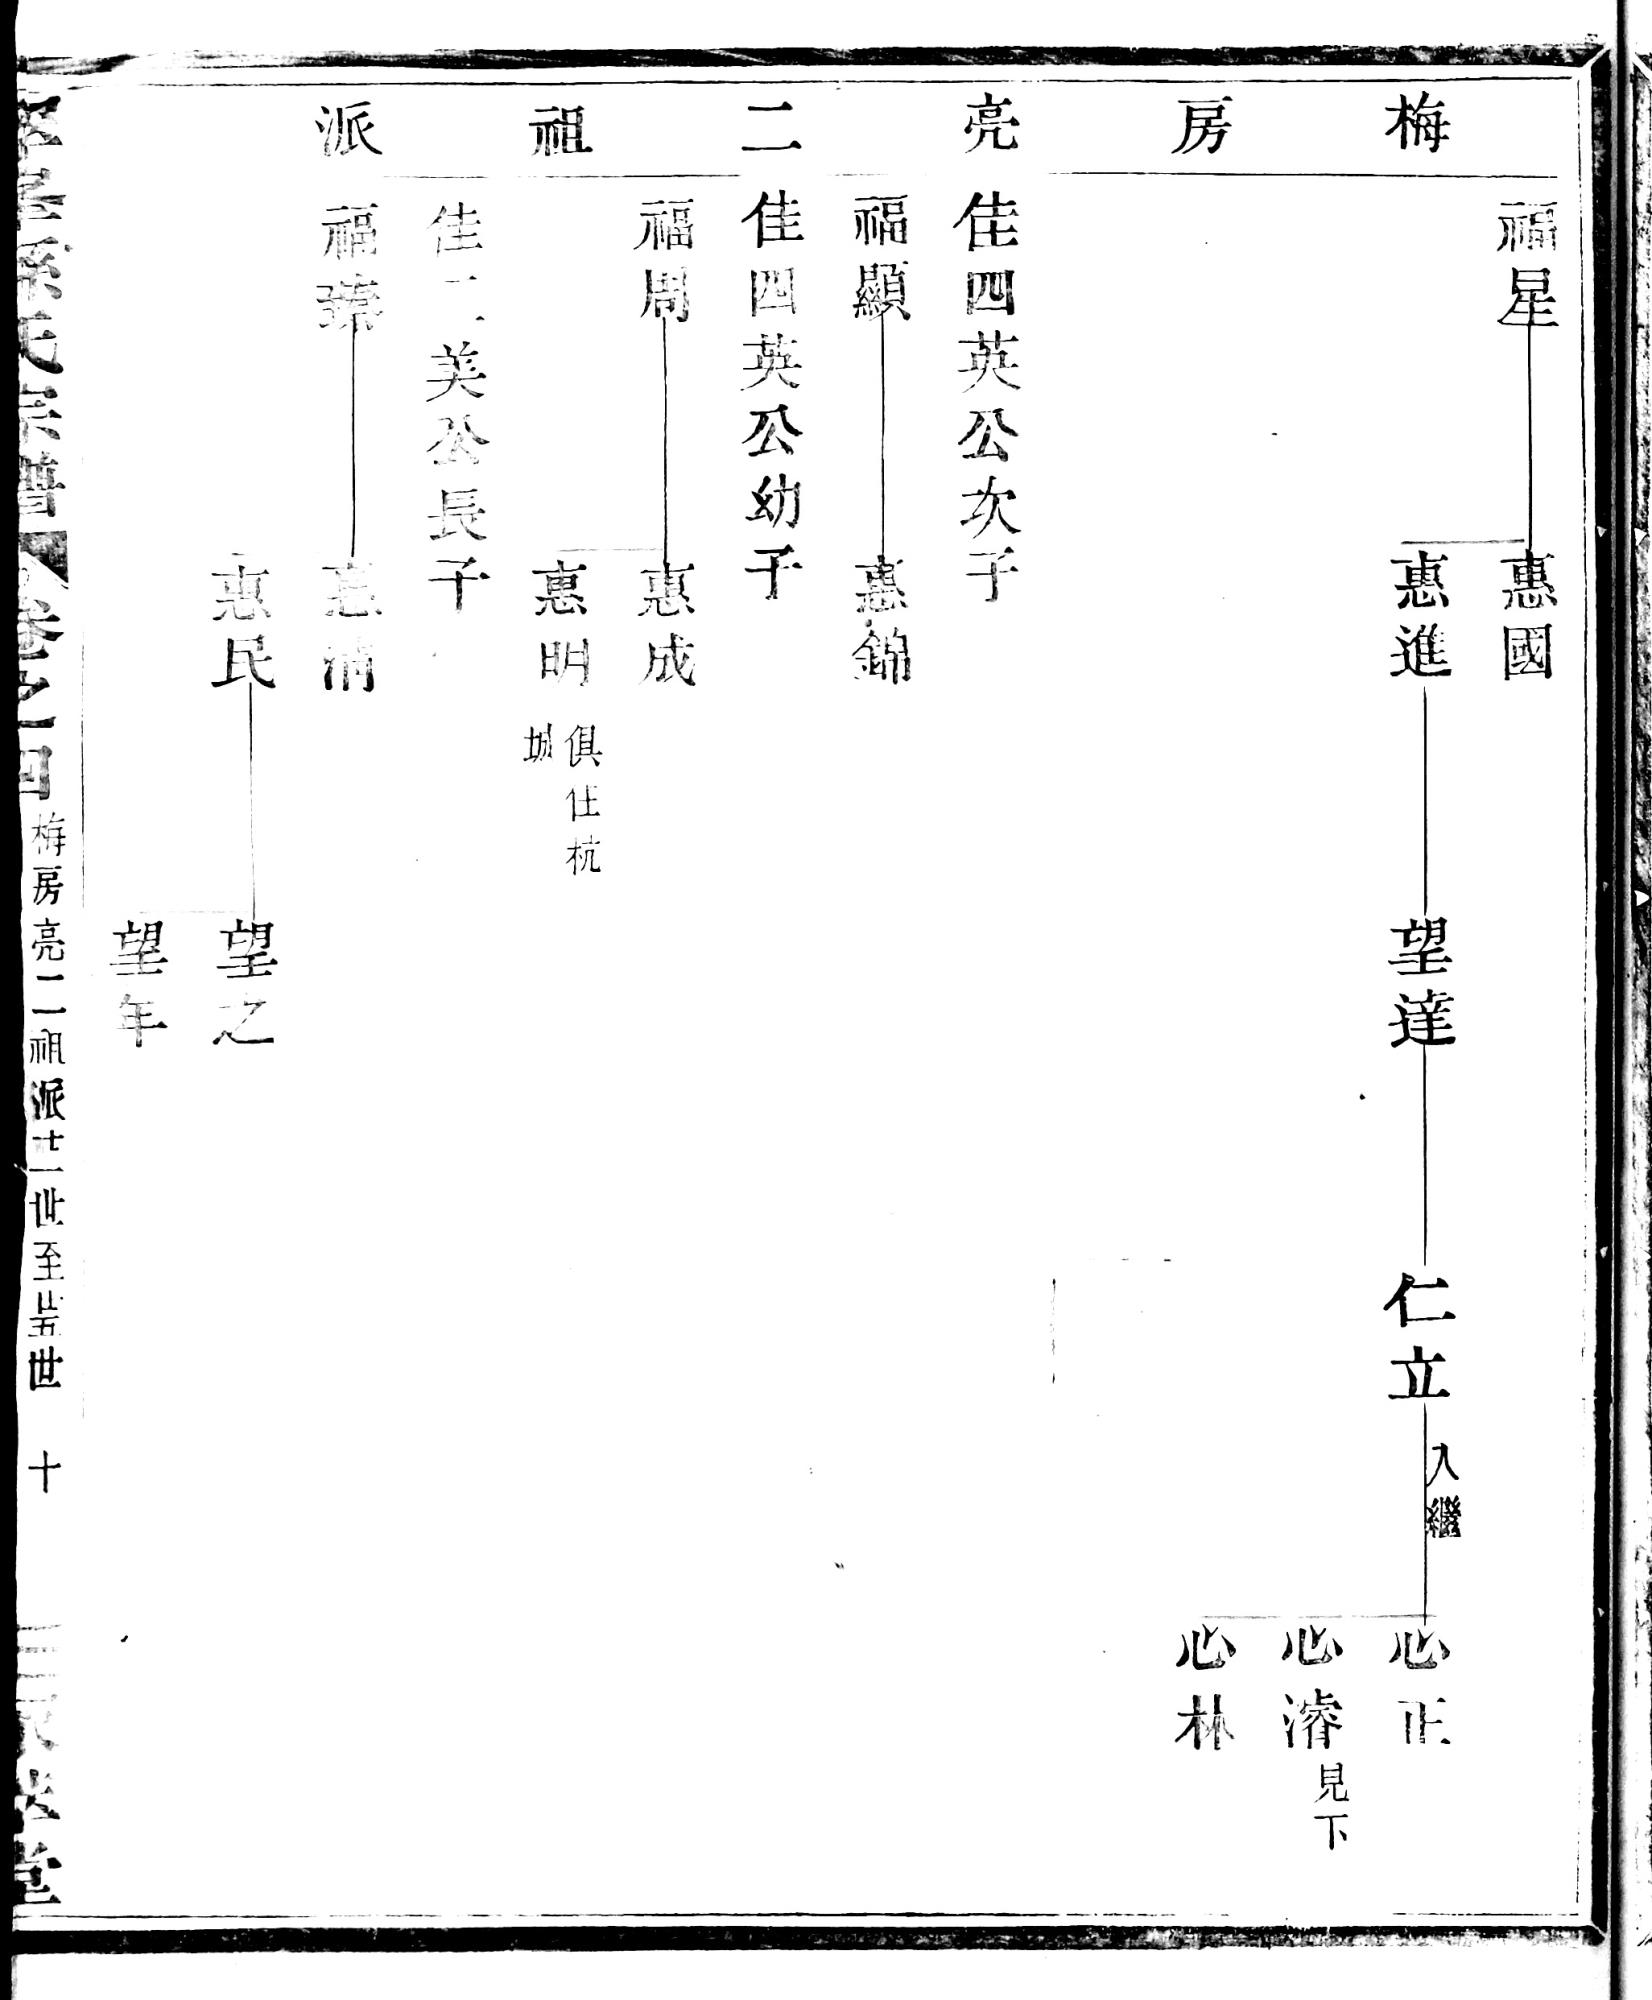 梅房亮二祖派
福星
惠國
惠進
望達
仁立
入繼
心正
心濬
見下
心林
佳四英公次子
福顯
惠錦
佳四英公幼子
福周
惠成
惠明
俱住杭
城
佳二美公長子
福臻
惠清
惠民
望之
望年
孫氏宗譜
卷之四
梅房亮二祖派廿一世至廿五世
十
堂